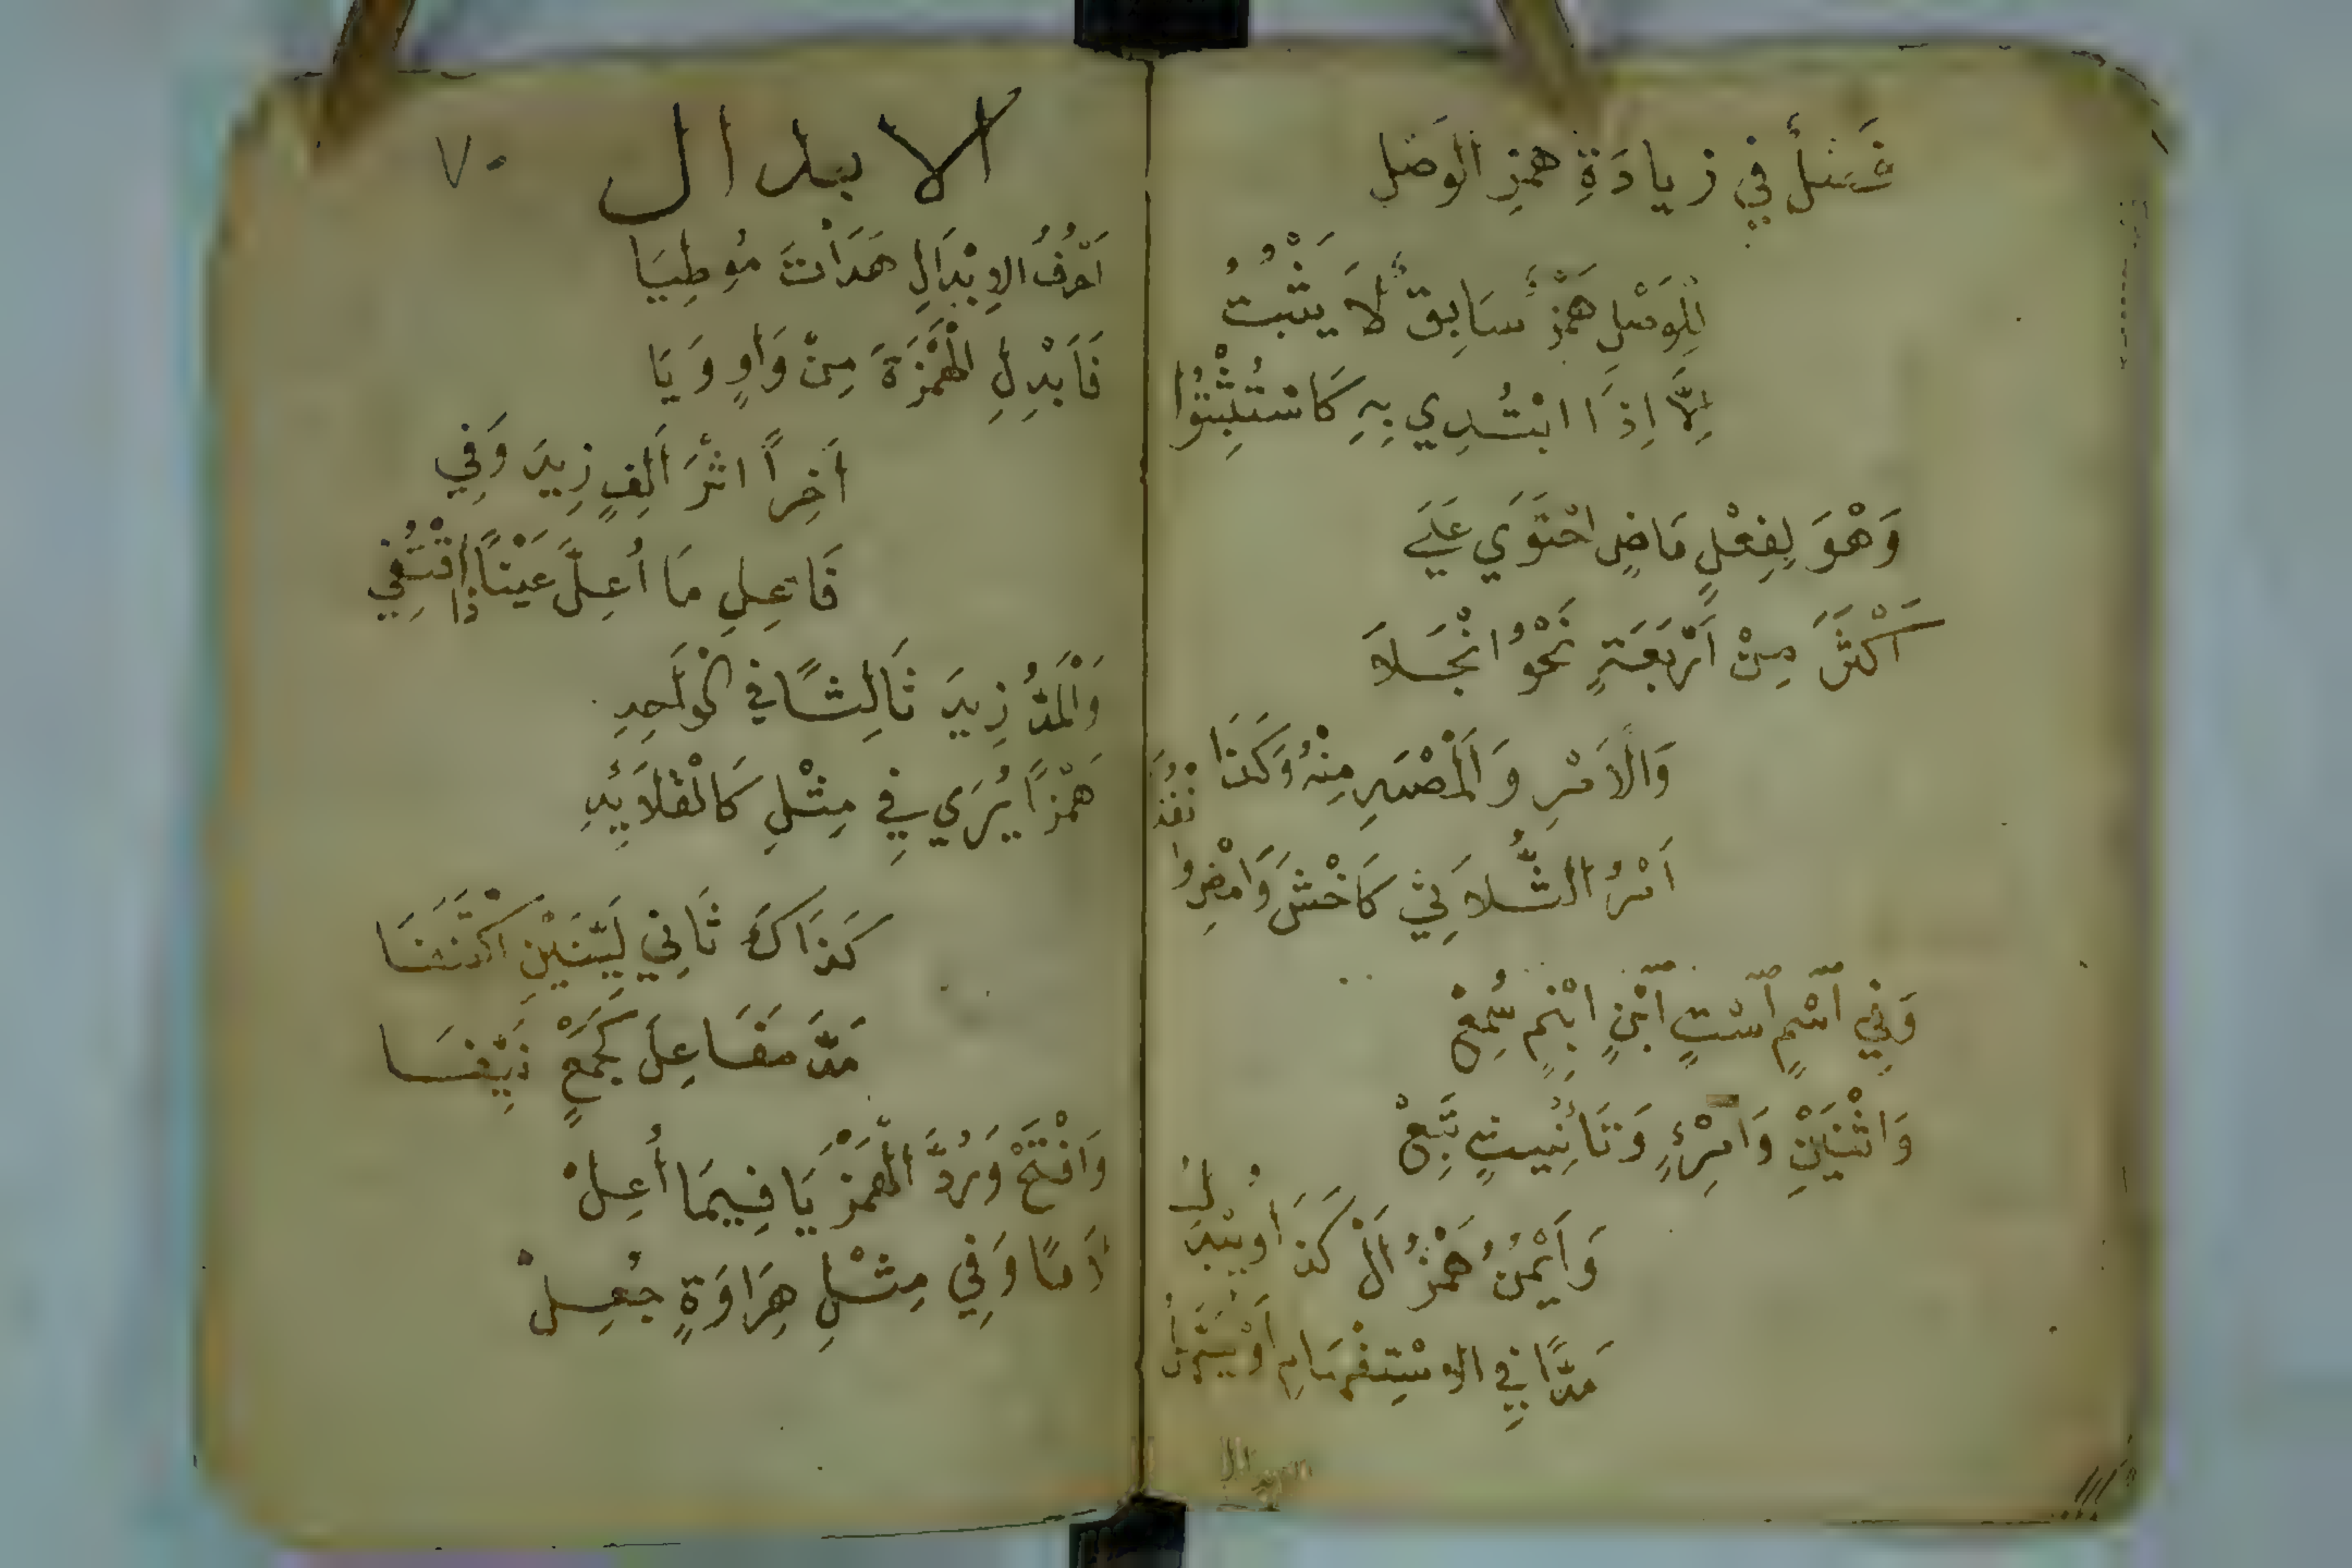 فَصْلٌ في زِيادَةِ همزِ الوَصْلِ
لِلْوَصْلِ هَمْزٌ سَابِقٌ لاَ يَثْبُتُ
إِلاَّ إِذَا ابْتُدِي بِهِ كَاسْتَثْبِتُوا
وَهْوَ لِفِعْلٍ مَاضٍ احْتَوَي عَلَي
أَكْثَرَ مِنْ أَرْبَعَةٍ نَحْوُ انْجَلاَ
وَالأَمْرِ وَالْمَصْدَرِ مِنْهُ وَكَذَا
أَمْرُ الثُّلاَثِي كَاخْشَ وَامْضِ وانْفُذَا
وَفِي اسْمٍ اسْتٍ ابْنٍ ابْنِمٍ سُمِعْ
وَاثْنَيْنِ وَامْرِئٍ وَتَأنِيثٍ تَبِعْ
وَأَيْمُنُ هَمْزُ أَلْ كَذَا وَيُبْدَلُ
مَدًّا فِي الاسْتِفْهَامِ أَوْ يُسَهَّلُ
الابدال
٧٠
أَحْرُفُ الإِبْدَالِ هَدَأْتَ مُوطِيَا
فَأَبْدِلِ الْهَمْزَةَ مِنْ وَاوٍ وَيَا
آخِراً اثْرَ أَلِفٍ زِيدَ وَفِي
فَاعِلِ مَا أُعِلَّ عَيْنًا ذا اقْتُفِي
وَالْمَدُّ زِيدَ ثَالِثًا في الْوَاحِدِ
هَمْزًا يُرَي فِي مِثْلِ كَالْقَلاَئِدِ
كَذَاكَ ثَانِي لَيِّنَيْنِ اكْتَنَفَا
مَدَّ مَفَاعِلَ كَجَمْعٍ نَيِّفَا
وَافْتَحْ وَرُدَّ الْهَمْزَ يَا فِيمَا أُعِلْ
لاَمًا وَفِي مِثْلِ هِرَاوَةٍ جُعِلْ